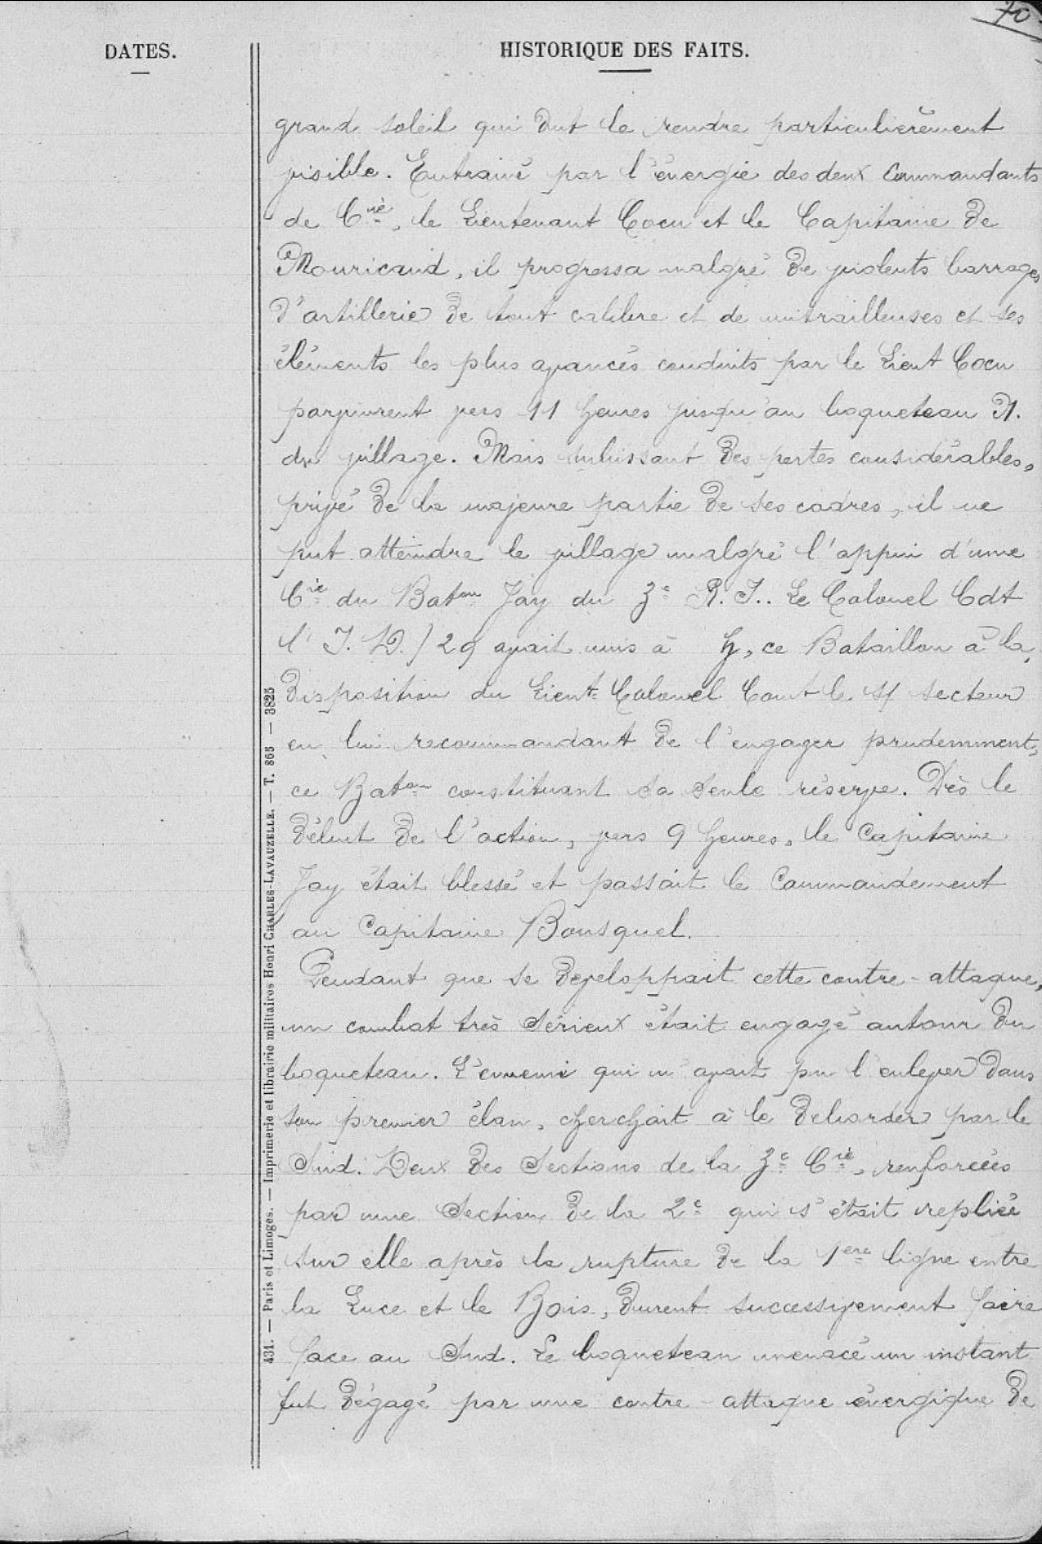 70
DATES.
HISTORIQUE DES FAITS.
grand soleil qui dut le rendre particulièrement
visible. Entrainé par l'énergie des deux Commandants
de Cie, le Lieutenant Cocu et le Capitaine de
Mouricaud, il progressa malgré de violents barrages
d'artillerie de tout calibre et de mitrailleuses et ses
éléments les plus avancés conduits par le Lieut Cocu
parvinrent vers 11 heures jusqu'au boqueteau N.
du village. Mais subissant des pertes considérables,
privé de la majeure partie de ses cadres, il ne
put atteindre le village malgré l'appui d'une
Cie du Baton Jay du 3e R.I.. Le Colonel Cdt
l'I.D./29 avait mis à h, ce Bataillon à la
disposition du Lieut Colonel Comt le s/ secteur
en lui recommandant de l'engager prudemment,
ce Baton constituant sa seule réserve. Dès le
début de l'action, vers 9 heures, le Capitaine
Jay était blessé et passait le Commandement
au Capitaine Bousquel.
Pendant que se developpait cette contre-attaque,
un combat très sérieux était engagé autour du
boqueteau. L'ennemi qui n'ayait pu l'enlever dans
son premier élan, cherchait à le déborder par le
Sud. Deux des Sections de la 3e Cie, renforcées
par une Section de la 2e qui s'était repliée
sur elle après la rupture de la 1ere ligne entre
la Luce et le Bois, durent successivement faire
face au Sud. Le boqueteau menacé un instant
fut dégagé par une contre-attaque énergique de
431. — Paris et Limoges. — Imprimerie et librairie militaires Henri CHARLES-LAVAUZELLE. — T. 865 — 3825